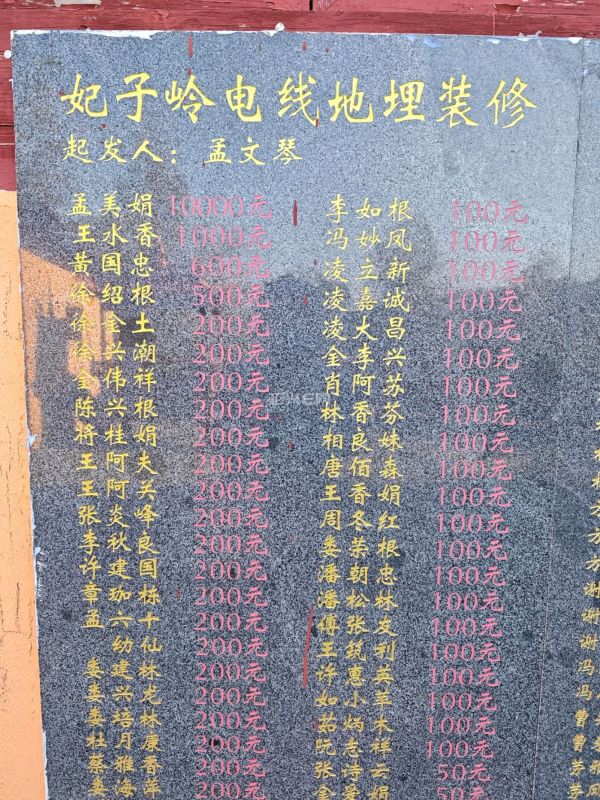 妃子岭电线地埋装修
起发人：孟文琴
孟美娟 10000元
王水香 1000元
黄国忠 600元
徐绍根 500元
徐金土 200元
徐兴潮 200元
金伟祥 200元
陈兴根 200元
将桂娟 200元
王阿夫 200元
王阿关 200元
张炎峰 200元
李秋良 200元
许建国 200元
章珈栋 200元
孟六十 200元
幼仙 200元
娄建林 200元
娄兴龙 200元
娄培林 200元
杜月康 200元
蔡雅香 200元
娄海萍 200元
李如根 100元
冯妙凤 100元
凌立新 100元
凌嘉诚 100元
凌大昌 100元
金李兴 100元
肖阿苏 100元
林香芬 100元
相良妹 100元
唐佰森 100元
王香娟 100元
周冬红 100元
娄荣根 100元
潘朝忠 100元
潘松林 100元
傅张友 100元
王筑利 100元
许惠英 100元
如小苹 100元
茹炳木 100元
阮志祥 100元
张诗云 50元
金爱娟 50元
方
方
谢
谢
谢
冯
冯
曹
曹
茅
茅